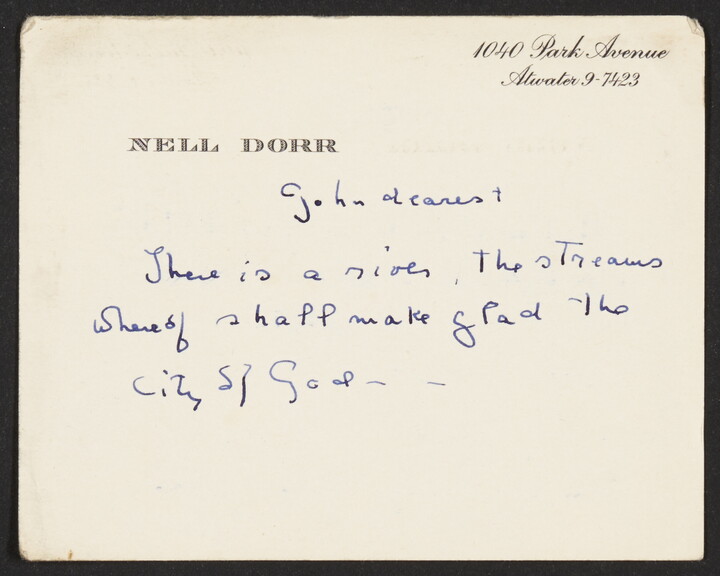 1040 Park Avenue
Atwater 9-7423
NELL DORR
John dearest
There is a river, the streams
whereof shall make glad the
City of God - -